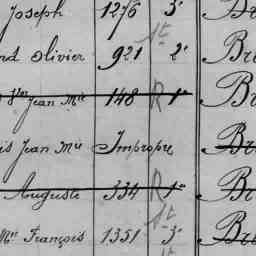 Joseph 1276 3e Br
nd Olivier 921 At 2e Br
Jean Mie 148 R 1e B
is Jean Mie Impropre Br
Auguste 334 R 1e Br
Mie François 1351 At 3e Br